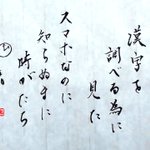 漢字を
調べる為に
見た
スマホなのに
知らぬまに
時がたち